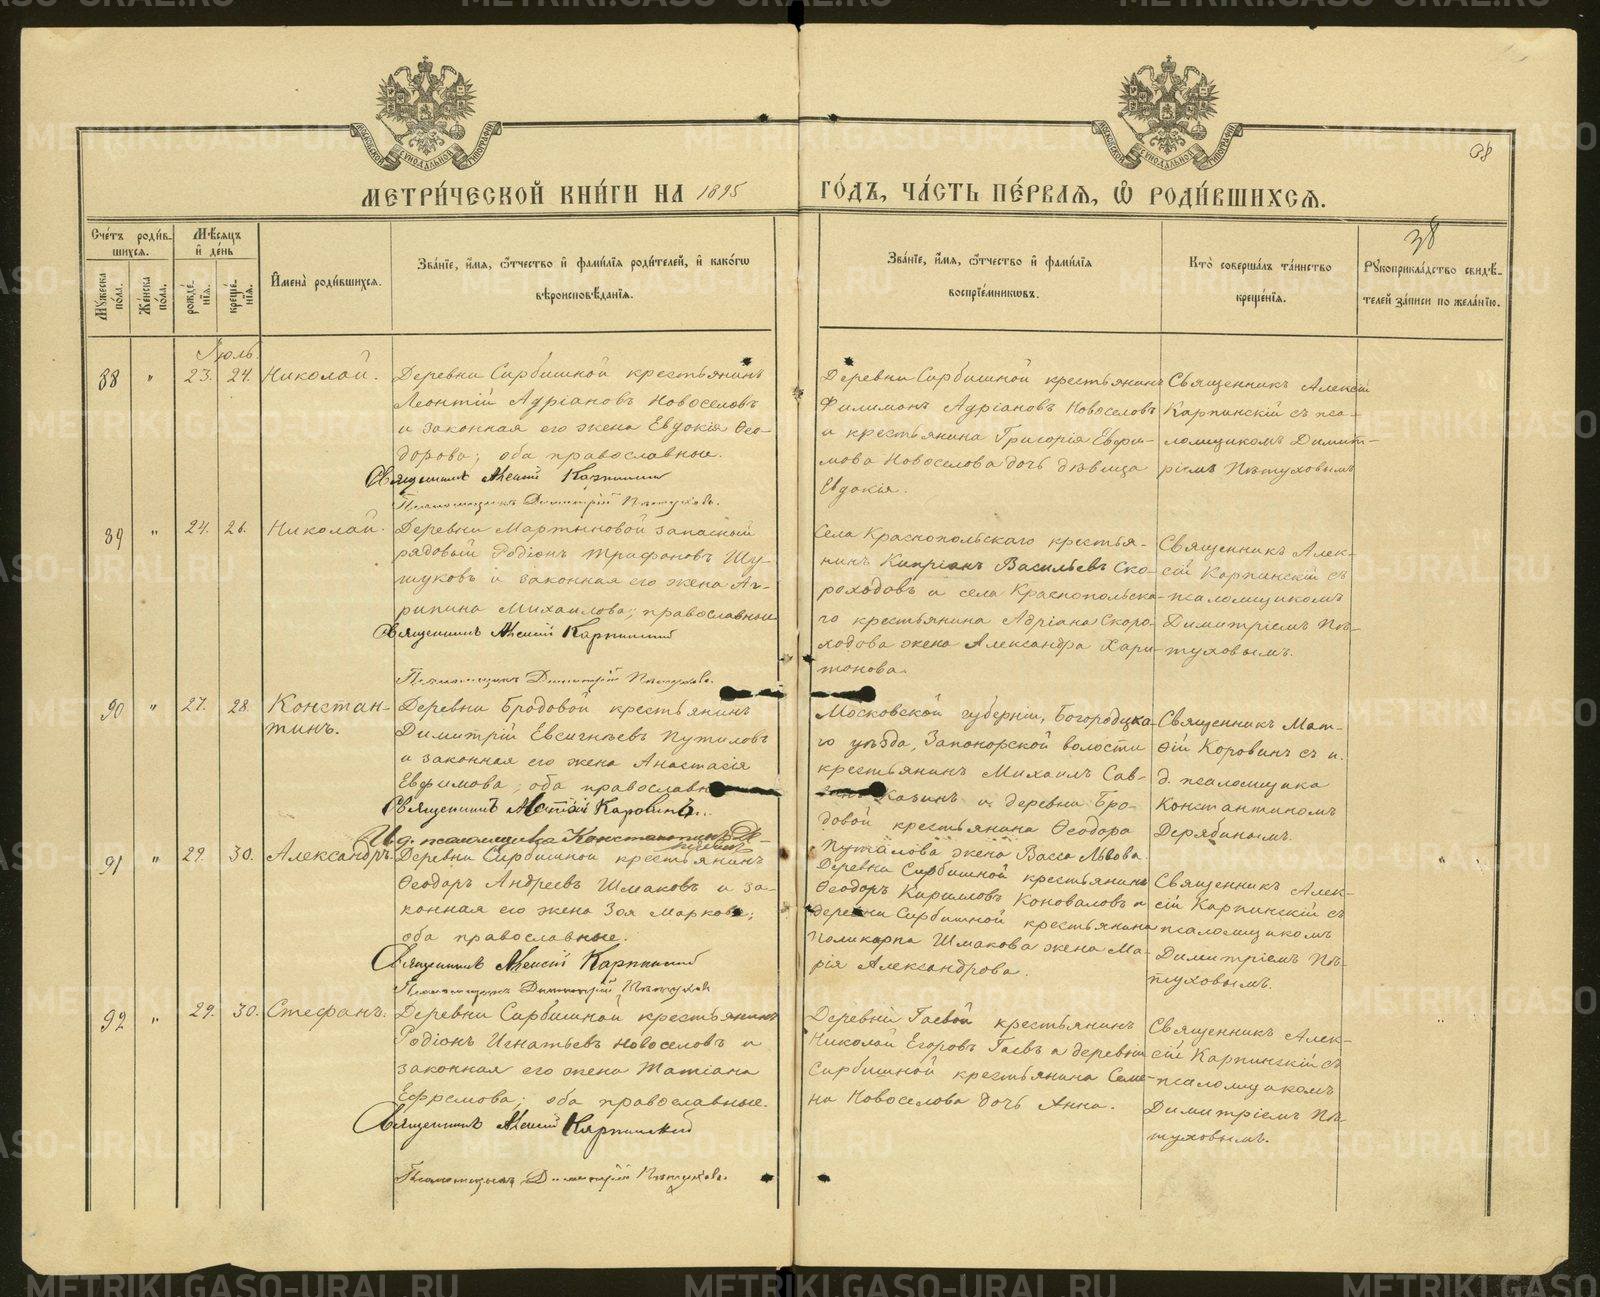 МЕТРИ́ЧЕСКОЙ КНИ́ГИ НА 1895
ГО́ДЪ, ЧА́СТЬ ПЕ́РВАѦ, Ѽ РОДИ́ВШИХСѦ.
38
38
Сче́тъ роди́в-
шихся.
Мѣ́сяцъ
и҆ де́нь
Му́жеска
по́ла.
Же́нска
по́ла.
рожде́-
нїѧ.
креще́-
нїѧ.
И҆мена̀ роди́вшихсѧ.
Зва́нїе, и҆́мѧ, ѻ҆́тчество и҆ фами́лїѧ роди́телей, и҆ како́гѡ
вѣроисповѣ́данїѧ.
Зва́нїе, и҆́мѧ, ѻ҆́тчество и҆ фами́лїѧ
воспрїе́мникѡвъ.
Кто̀ соверша́лъ та́инство
креще́нїѧ.
Рꙋкоприкла́дство свидѣ́-
телей за́писи по жела́нїю.
Іюль.
38 " 23. 24. Николай.
Деревни Сарбишной крестьянинъ
Леонтій Адріановъ Новоселовъ
и законная его жена Евдокія Ѳео-
дорова; оба православные.
Священникъ Алексій Карпинскій
Псаломщикъ Димитрій Пѣтуховъ.
Деревни Сарбишной крестьянинъ
Филимонъ Адріановъ Новоселовъ
и крестьянина Григорія Евфи-
мова Новоселова дочь дѣвица
Евдокія.
Священникъ Алексій
Карпинскій съ пса-
ломщикомъ Димит-
ріемъ Пѣтуховымъ
89 " 24. 26. Николай.
Деревни Мартыновой запасный
рядовый Родіонъ Трифоновъ Шу-
туковъ и законная его жена Аг-
рипина Михаилова; православные
Священникъ Алексій Карпинскій
Псаломщикъ Димитрій Пѣтуховъ.
Села Краснопольскаго крестья-
нинъ Кипріанъ Васильевъ Ско-
роходовъ и села Краснопольска-
го крестьянина Адріана Скоро-
ходова жена Александра Хари-
тонова.
Священникъ Алек-
сій Карпинскій съ
псаломщикомъ
Димитріемъ Пѣ-
туховымъ.
90 " 27. 28. Констан-
тинъ.
Деревни Бродовой крестьянинъ
Димитрій Евсигнѣевъ Путиловъ
и законная его жена Анастасія
Евфимова; оба православн
Священникъ Матѳій Коровинъ.
И. д. псаломщика Константинъ Де-
рябинъ
Московской губерніи, Богородска-
го уѣзда, Запонорской волости
крестьянинъ Михаилъ Сав-
и деревни Бро-
довой крестьянина Ѳеодора
Путилова жена Васса Львова.
Священникъ Мат-
ѳій Коровинъ съ и.
д. псаломщика
Константиномъ
Дерябинымъ.
91 " 29. 30. Александръ.
Деревни Сарбишной крестьянинъ
Ѳеодоръ Андреевъ Шмаковъ и за-
конная его жена Зоя Маркова;
оба православные.
Священникъ Алексій Карпинскій
Псаломщикъ Димитрій Пѣтуховъ
Деревни Сарбишной крестьянинъ
Ѳеодоръ Кириловъ Коноваловъ и
деревни Сарбишной крестьянина
Поликарпа Шмакова жена Ма-
рія Александрова.
Священникъ Алек-
сій Карпинскій съ
псаломщикомъ
Димитріемъ Пѣ-
туховымъ.
92 " 29. 30. Стефанъ.
Деревни Сарбишной крестьянинъ
Родіонъ Игнатьевъ Новоселовъ и
законная его жена Татіана
Ефремова; оба православные.
Священникъ Алексій Карпинскій
Псаломщикъ Димитрій Пѣтуховъ.
Деревни Гаевой крестьянинъ
Николай Егоровъ Гаевъ и деревни
Сарбишной крестьянина Семе-
на Новоселова дочь Анна.
Священникъ Алек-
сій Карпинскій съ
псаломщикомъ
Димитріемъ Пѣ-
туховымъ.
METRIKI.GASO-URAL.RU